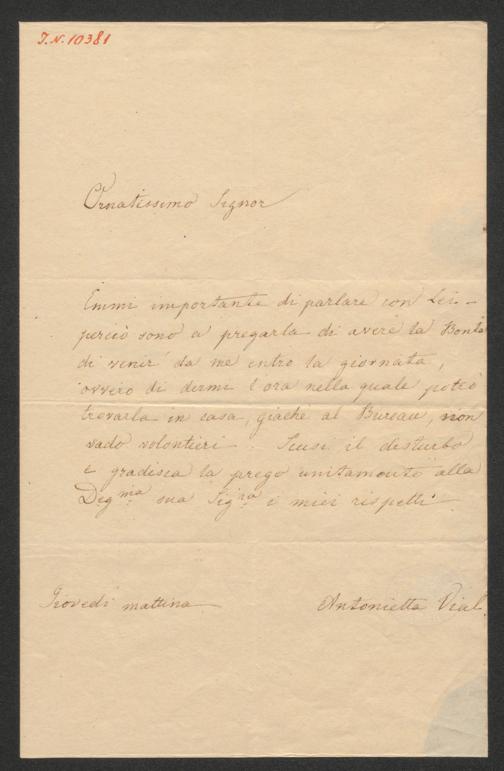 J.N. 10381
Ornatissimo Signor
Emmi importante di parlare con Lei -
perciò sono a pregarla di avere la Bontà
di venir' da me entro la giornata,
ovvero di dirmi l'ora nella quale potrò
trovarla in casa, giachè al Bureau, non
vado volontieri. Scusi il disturbo
e gradisca la prego unitamente alla
Degma sua Sigra i miei rispetti
Giovedì mattina
Antonietta Vial